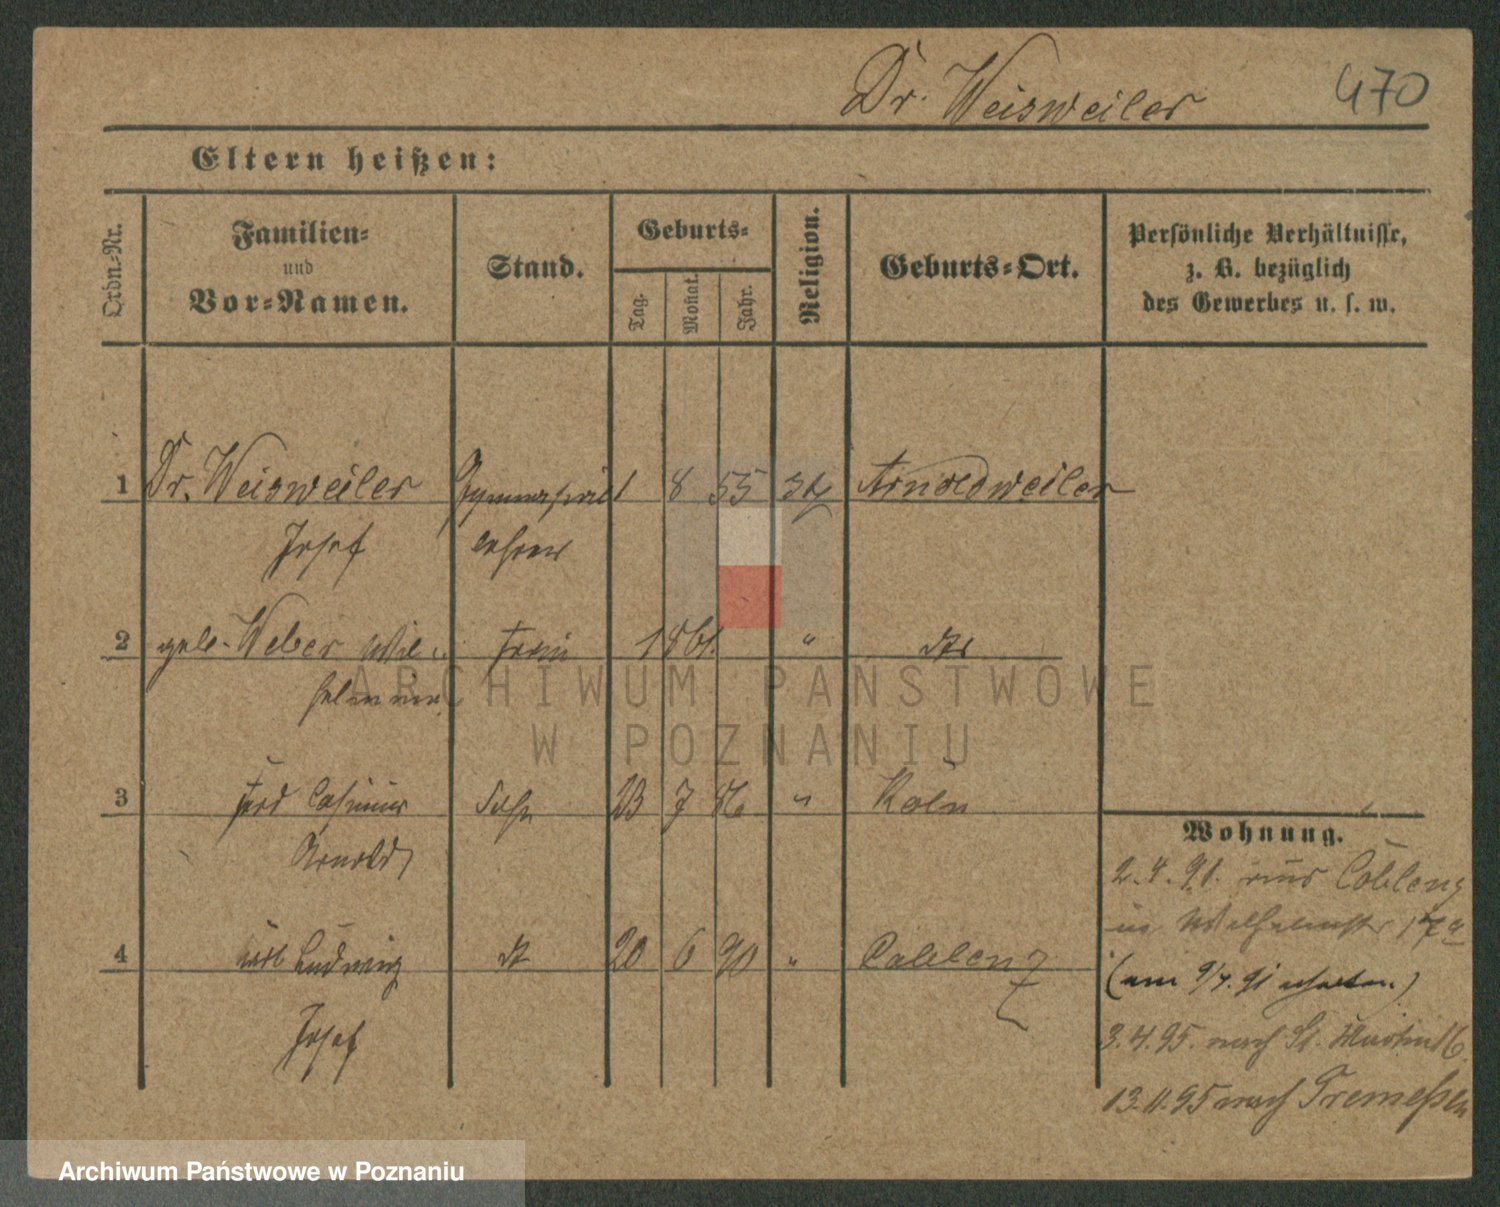 Dr. Weisweiler 470
Eltern heißen:
Ordn.-Nr.
Familien-
und
Vor-Namen.
Stand.
Geburts-
Tag.
Monat.
Jahr.
Religion.
Geburts-Ort.
Persönliche Verhältnisse,
z. B. bezüglich
des Gewerbes u. s. w.
1 Dr. Weisweiler Gymnasial 1 8 55 Arnoldweiler
Josef lehrer
2 geb. Weber Wil- Frau 1861. " dto
helmine
3 Ferd Casimir Sohn 23 7 86 " Köln
Arnold
4 Ludwig dto 20 6 90 " Coblenz
Josef
Wohnung.
2.4.91. aus Coblenz
in Wilhelmstr
(am 9/4. 91 erhalten.)
3.4.95. nach St. Martin 16.
13.11.95 nach Tremeßen
ARCHIWUM PAŃSTWOWE
W POZNANIU
Archiwum Państwowe w Poznaniu